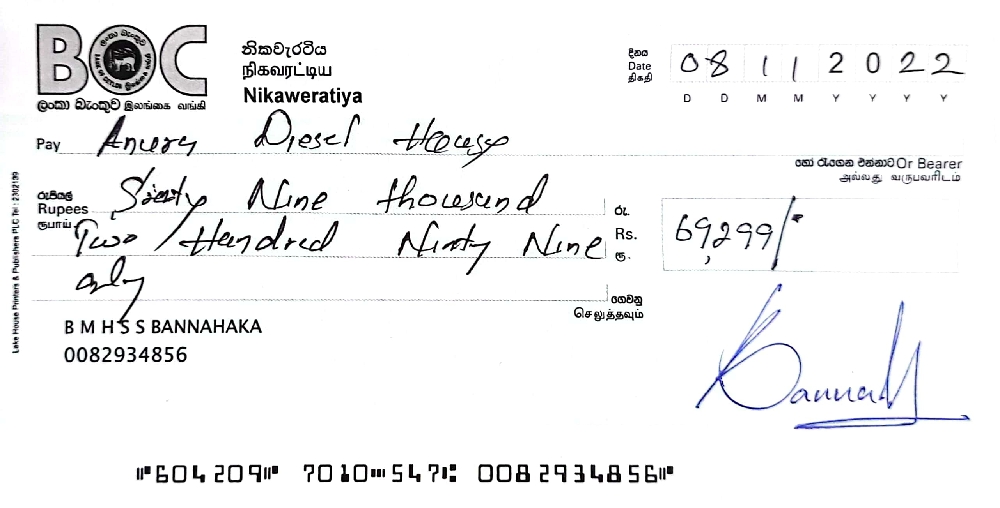 BOC
ලංකා බැංකුව இலங்கை வங்கி
නිකවැරටිය
நிகவரட்டிய
Nikaweratiya
දිනය
Date
திகதி
08 11 2022
D D M M Y Y Y Y
Pay Anura Diesel House
හෝ රැගෙන එන්නාට Or Bearer
அல்லது வருபவரிடம்
රුපියල්
Rupees
ரூபாய்
Sixty Nine thousand
Two Hundred Ninty Nine
only
රු.
Rs.
ரூ.
69,299/-
ගෙවනු
செலுத்தவும்
B M H S S BANNAHAKA
0082934856
Bannah
Lake House Printers & Publishers PLC Tel : 2302139
⑈604209⑈ 7010⑉547⑆ 0082934856⑈